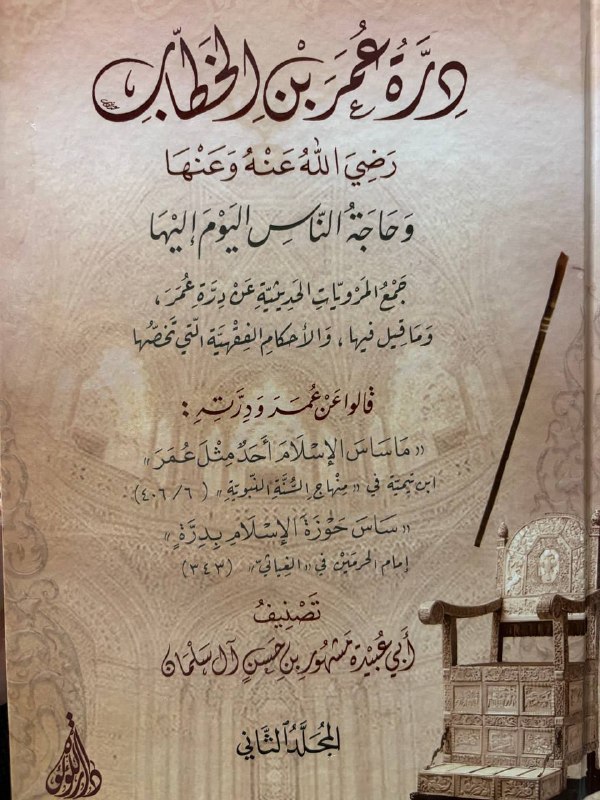 دِرَّةُ عُمَرَ بْنِ الخَطَّابِ
رَضِيَ اللهُ عَنْهُ وَعَنْهَا
وَحَاجَةُ النَّاسِ اليَوْمَ إِلَيْهَا
جَمْعُ المَرْوِيَّاتِ الحَدِيثِيَّةِ عَنْ دِرَّةِ عُمَرَ،
وَمَا قِيلَ فِيهَا، وَالأَحْكَامِ الفِقْهِيَّةِ الَّتِي تَخُصُّهَا
قَالُوا عَنْ عُمَرَ وَدِرَّتِهِ:
«مَا سَاسَ الإِسْلَامَ أَحَدٌ مِثْلَ عُمَرَ»
ابن تيميّة في «مِنْهاجِ السُّنَّةِ النَّبَوِيَّةِ» (٤٠٦/٦)
«سَاسَ حَوْزَةَ الإِسْلَامِ بِدِرَّةٍ»
إمام الحرمَيْن في «الغِياثيّ» (٣٤٣)
تَصْنِيفُ
أَبِي عُبَيْدَةَ مَشْهُورِ بْنِ حَسَنٍ آلِ سَلْمَان
المُجَلَّدُ الثَّانِي
دار اللؤلؤة